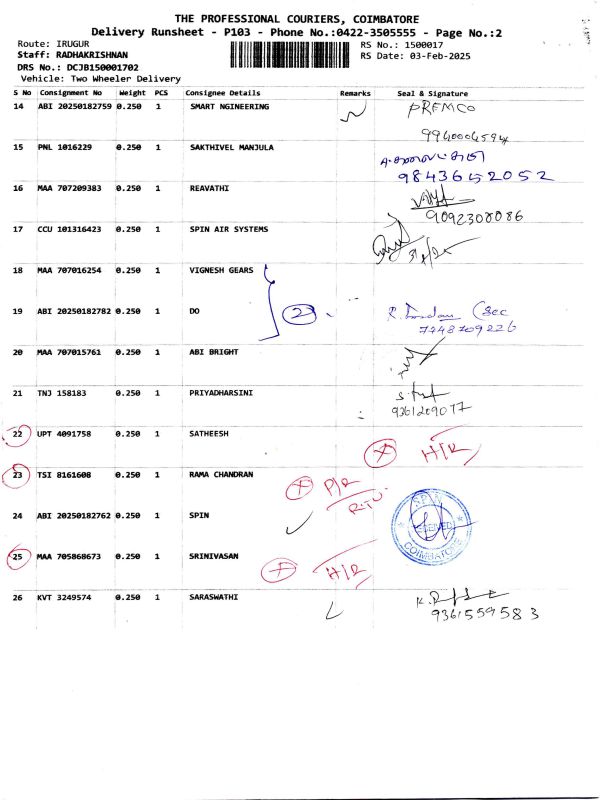 THE PROFESSIONAL COURIERS, COIMBATORE
Delivery Runsheet - P103 - Phone No.:0422-3505555 - Page No.:2
Route: IRUGUR RS No.: 1500017
Staff: RADHAKRISHNAN RS Date: 03-Feb-2025
DRS No.: DCJB150001702
Vehicle: Two Wheeler Delivery
S No Consignment No Weight PCS Consignee Details Remarks Seal & Signature
14 ABI 20250182759 0.250 1 SMART NGINEERING PREMCO
9940004594
15 PNL 1016229 0.250 1 SAKTHIVEL MANJULA
9843652052
16 MAA 707209383 0.250 1 REAVATHI
9092308086
17 CCU 101316423 0.250 1 SPIN AIR SYSTEMS
18 MAA 707016254 0.250 1 VIGNESH GEARS
19 ABI 20250182782 0.250 1 DO 2
7448709226
20 MAA 707015761 0.250 1 ABI BRIGHT
21 TNJ 158183 0.250 1 PRIYADHARSINI
9361209077
22 UPT 4091758 0.250 1 SATHEESH H/R
23 TSI 8161608 0.250 1 RAMA CHANDRAN P/R
24 ABI 20250182762 0.250 1 SPIN SPIN
COIMBATORE
25 MAA 705868673 0.250 1 SRINIVASAN H/R
26 KVT 3249574 0.250 1 SARASWATHI
9361559583